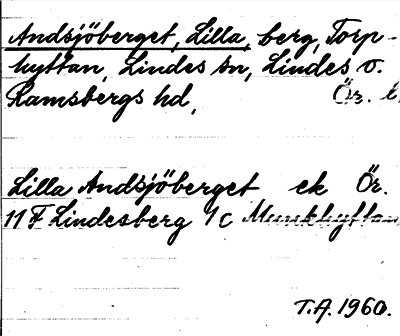 Andsjöberget, Lilla, berg, Torp-
hyttan, Lindes sn, Lindes o.
Ramsbergs hd, Ör. l
Lilla Andsjöberget ek Ör.
11 F Lindesberg 1c Munkhyttan
T.A. 1960.